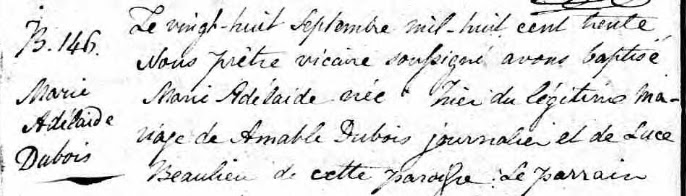 B. 146.
Marie
Adélaide
Dubois
Le vingt-huit Septembre mil-huit cent trente
Nous prêtre vicaire soussigné avons baptisé
Marie Adélaide née hier du légitime ma-
riage de Amable Dubois journalier et de Luce
Beaulieu de cette paroisse. Le parrain